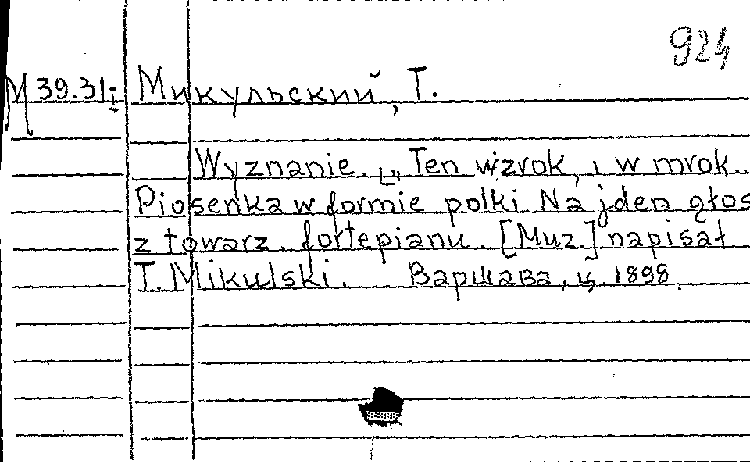 924
М 39.31 Микульский, Т.
Wyznanie. "Ten wzrok, i w mrok..
Piosenka w formie polki Na jden głos
z towarz. fortepianu. [Muz.] napisał
T. Mikulski. Варшава, ц. 1898.